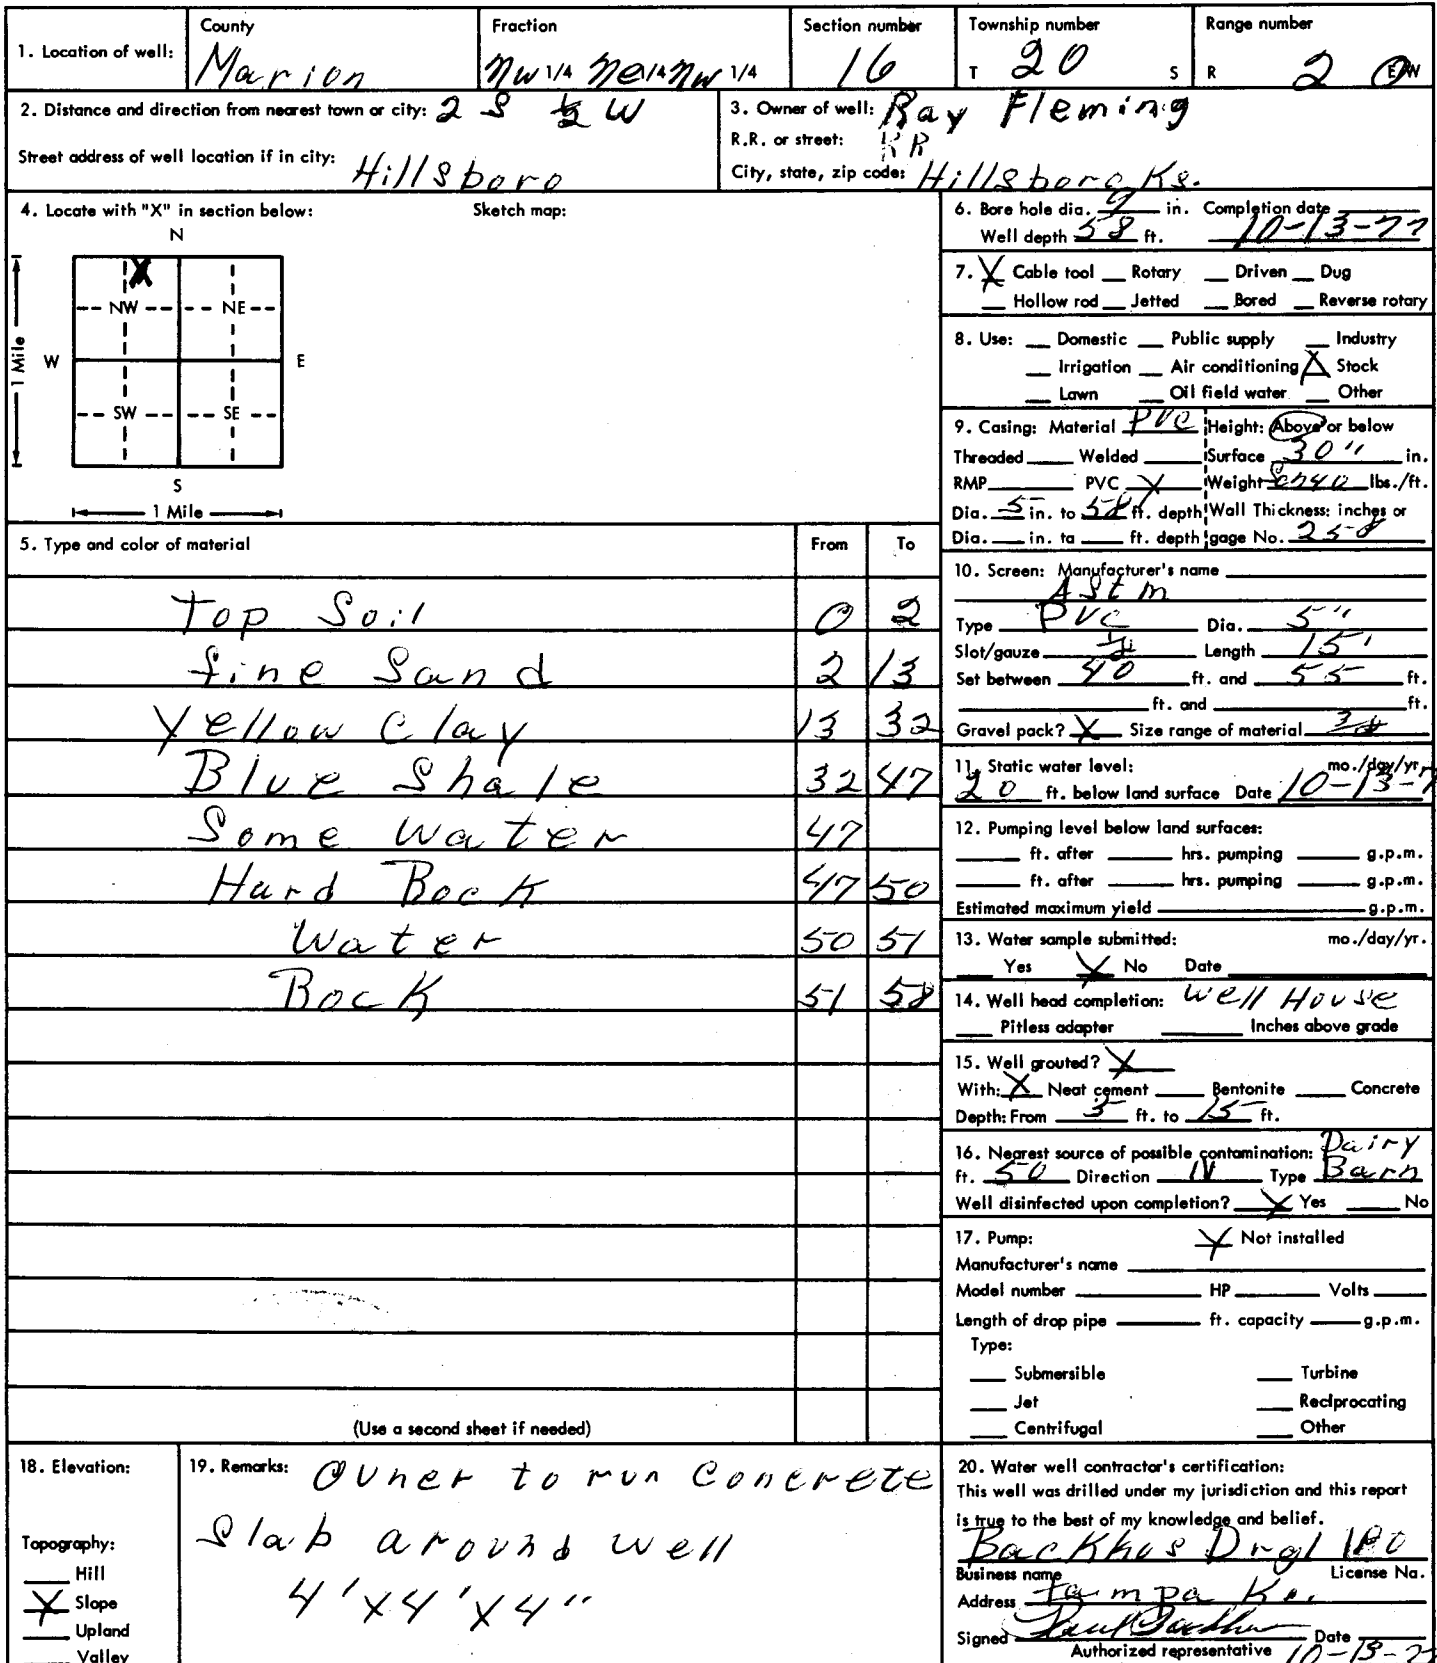 1. Location of well: County Marion Fraction NW 1/4 NE 1/4 NW 1/4 Section number 16 Township number T 20 S Range number R 2 E W
2. Distance and direction from nearest town or city: 2 S ½ W
Street address of well location if in city: Hillsboro
3. Owner of well: Ray Fleming
R.R. or street: RR
City, state, zip code: Hillsboro Ks.
4. Locate with "X" in section below: Sketch map:
N
X
NW NE
W E
1 Mile
SW SE
S
1 Mile
5. Type and color of material From To
Top Soil 0 2
fine Sand 2 13
Yellow Clay 13 32
Blue Shale 32 47
Some Water 47
Hard Rock 47 50
Water 50 51
Rock 51 58
(Use a second sheet if needed)
6. Bore hole dia. 9 in. Completion date
Well depth 58 ft. 10-13-77
7. X Cable tool __ Rotary __ Driven __ Dug
__ Hollow rod __ Jetted __ Bored __ Reverse rotary
8. Use: __ Domestic __ Public supply __ Industry
__ Irrigation __ Air conditioning X Stock
__ Lawn __ Oil field water __ Other
9. Casing: Material PVC Height: Above or below
Threaded ___ Welded ___ Surface 30" in.
RMP ___ PVC X Weight Sch40 lbs./ft.
Dia. 5 in. to 58 ft. depth Wall Thickness: inches or
Dia. ___ in. to ___ ft. depth gage No. 258
10. Screen: Manufacturer's name
ASTM
Type PVC Dia. 5"
Slot/gauze Length 15'
Set between 40 ft. and 55 ft.
___ ft. and ___ ft.
Gravel pack? X Size range of material
11. Static water level: mo./day/yr.
20 ft. below land surface Date 10-13-7
12. Pumping level below land surfaces:
___ ft. after ___ hrs. pumping ___ g.p.m.
___ ft. after ___ hrs. pumping ___ g.p.m.
Estimated maximum yield ___ g.p.m.
13. Water sample submitted: mo./day/yr.
__ Yes X No Date
14. Well head completion: Well House
__ Pitless adapter ___ Inches above grade
15. Well grouted? X
With: X Neat cement ___ Bentonite ___ Concrete
Depth: From 5 ft. to 15 ft.
16. Nearest source of possible contamination: Dairy
ft. 50 Direction N Type Barn
Well disinfected upon completion? X Yes ___ No
17. Pump: X Not installed
Manufacturer's name
Model number ___ HP ___ Volts ___
Length of drop pipe ___ ft. capacity ___ g.p.m.
Type:
__ Submersible __ Turbine
__ Jet __ Reciprocating
__ Centrifugal __ Other
18. Elevation:
Topography:
__ Hill
X Slope
__ Upland
__ Valley
19. Remarks: Owner to run Concrete
Slab around well
4'x4'x4"
20. Water well contractor's certification:
This well was drilled under my jurisdiction and this report
is true to the best of my knowledge and belief.
Backhus Drgl 180
Business name License No.
Address Tampa Ks.
Signed Date
Authorized representative 10-13-77